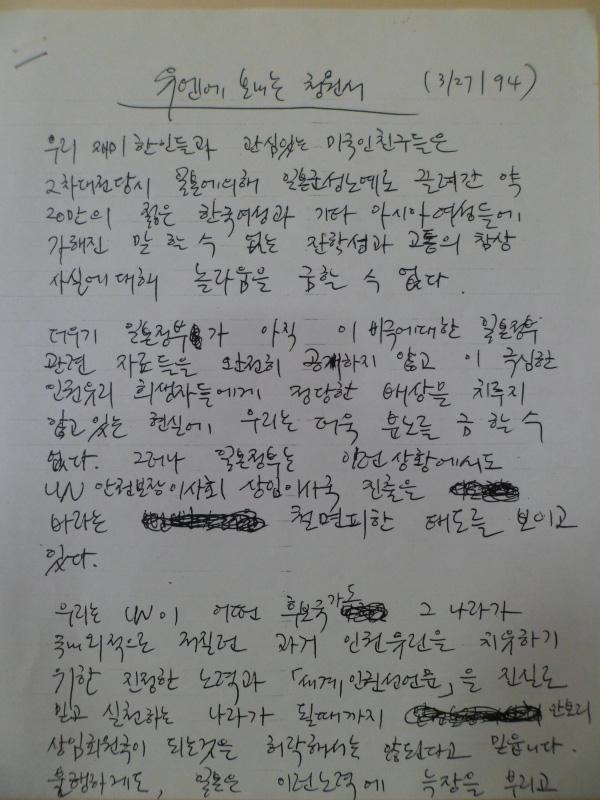 유엔에 보내는 청원서 (3/27/94)
우리 재미한인들과 관심있는 미국인친구들은
2차대전당시 일본에의해 일본군성노예로 끌려간 약
20만의 젊은 한국여성과 기타 아시아여성들에
가해진 말 할 수 없는 잔학성과 고통의 참상
사실에대해 놀라움을 금할 수 없다.
더우기 일본정부가 아직 이 비극에대한 일본정부
관련 자료들을 완전히 공개하지 않고 이 극심한
인권유리 희생자들에게 정당한 배상을 치루지
않고있는 현실에 우리는 더욱 분노를 금 할 수
없다. 그러나 일본정부는 이런상황에서도
UN 안전보장이사회 상임이사국 진출을
바라는 철면피한 태도를 보이고
있다.
우리는 UN이 어떤 후보국가도 그 나라가
국내외적으로 저질런 과거 인권유린을 치유하기
위한 진정한 노력과 「세계인권선언문」을 진실로
믿고 실천하는 나라가 될때까지 안보리
상임회원국이 되는것을 허락해서는 않된다고 믿읍니다.
불행하게도, 일본은 이런노력에 늑장을 부리고